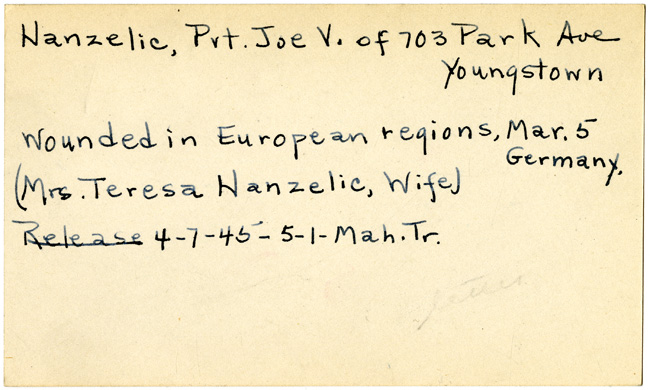 Hanzelic, Pvt. Joe V. of 703 Park Ave
Youngstown
Wounded in European regions, Mar. 5
Germany,
(Mrs. Teresa Hanzelic, Wife)
Release 4-7-45- 5-1- Mah. Tr.